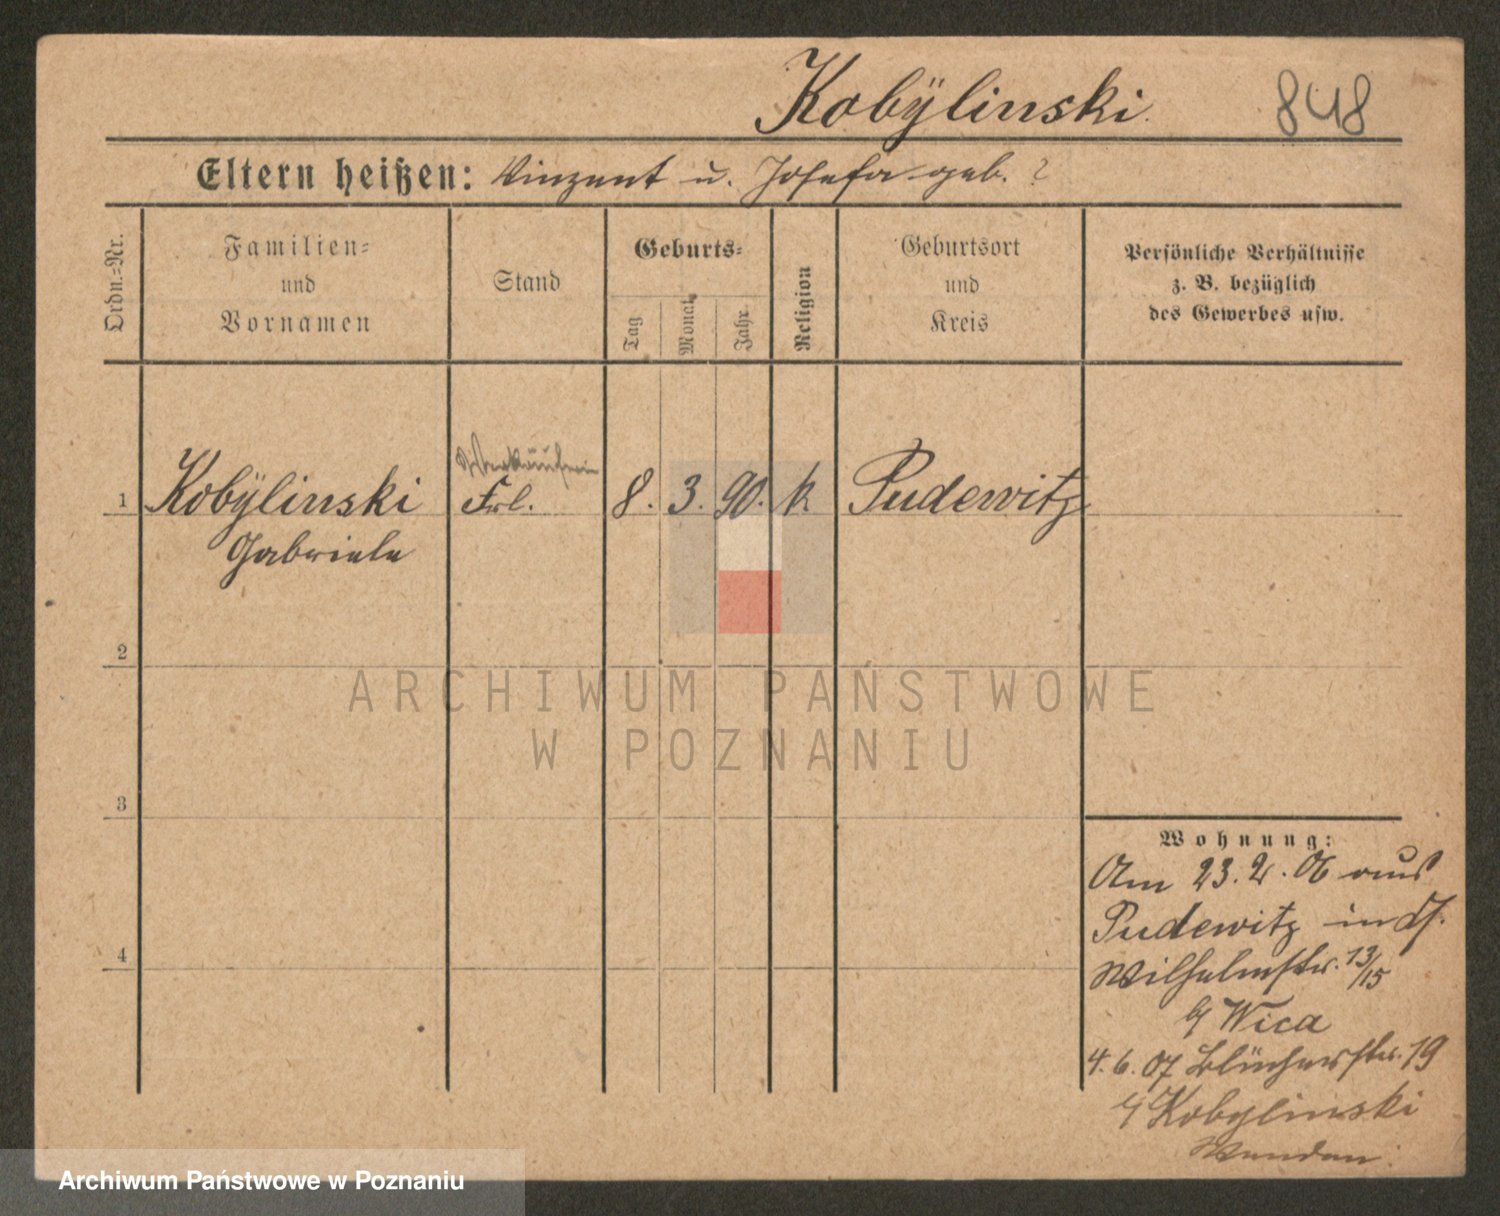 Kobÿlinski 848
Eltern heißen: Vinzent u. Josefa geb. ?
Ordn.=Nr.
Familien=
und
Vornamen
Stand
Geburts=
Tag
Monat
Jahr
Religion
Geburtsort
und
Kreis
Persönliche Verhältnisse
z. B. bezüglich
des Gewerbes usw.
Verkäuferin
1 Kobÿlinski Frl. 8. 3. 90. k Pudewitz
Gabriele
2
ARCHIWUM PAŃSTWOWE
W POZNANIU
3
4
Wohnung:
Am 23. 2. 06 aus
Pudewitz in
Wilhelmstr. 13/15
b/ Wica
4. 6. 07 Blücherstr. 19
b/ Kobylinski
Wenden.
Archiwum Państwowe w Poznaniu